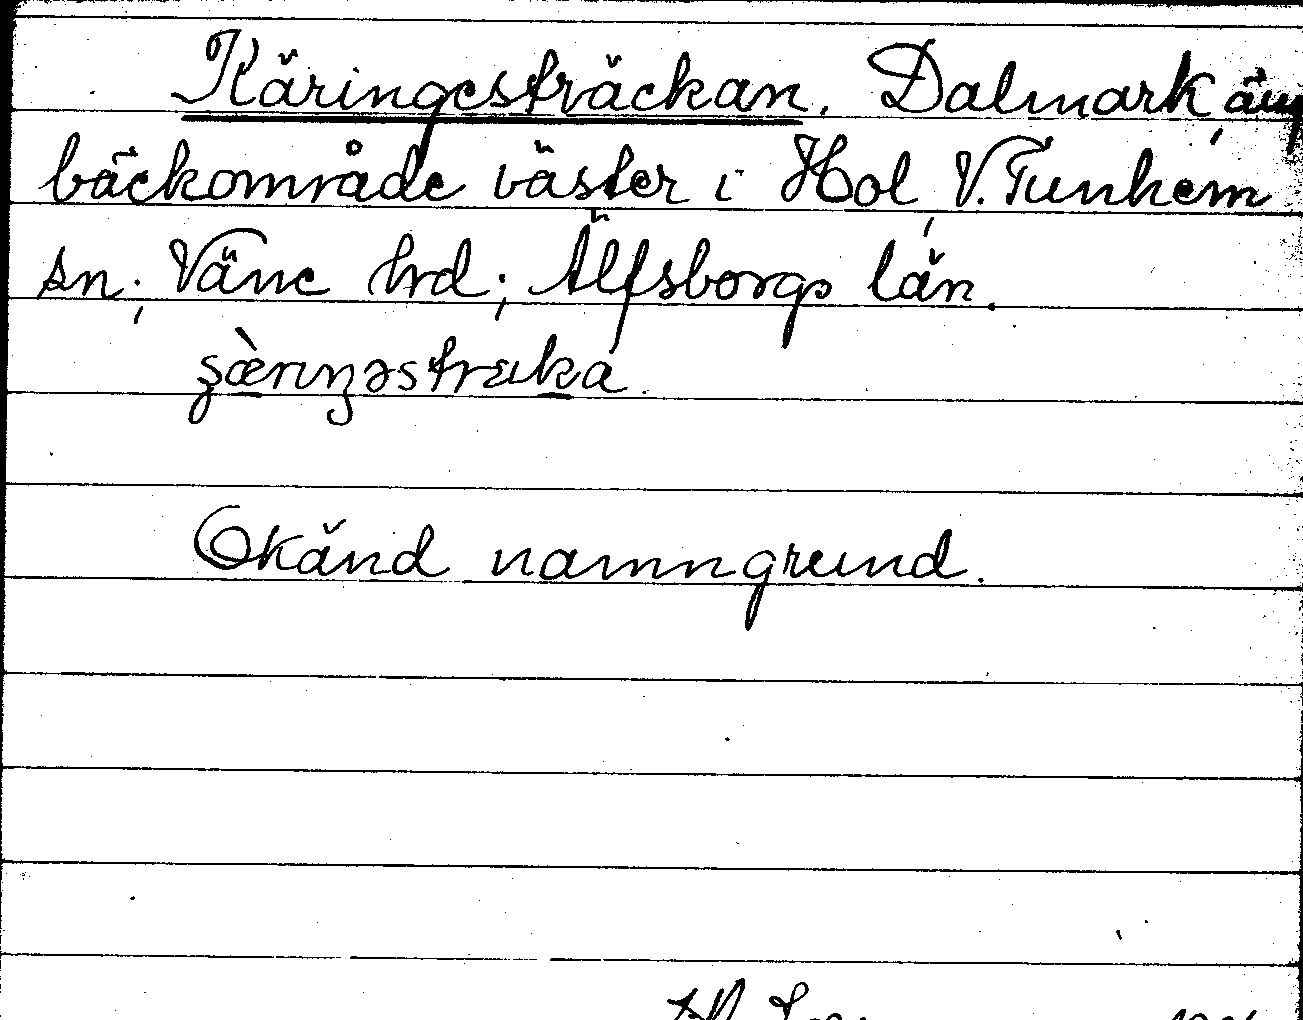 Käringesträckan. Dalmark, äng,
bäckområde väster i Hol, V. Tunhem
sn; Väne hrd; Älfsborgs län.
Okänd namngrund.